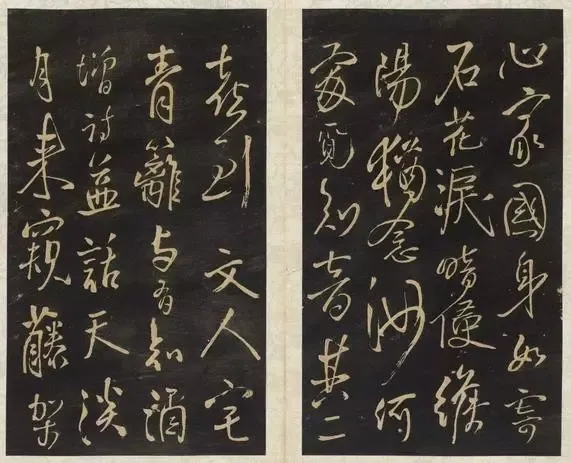 心家國身如寄
石花淚暗
陽猶念汝何
處覓知音其二
喜到文人宅
青籬与有知酒
增詩益話天淡
月來窺藤架